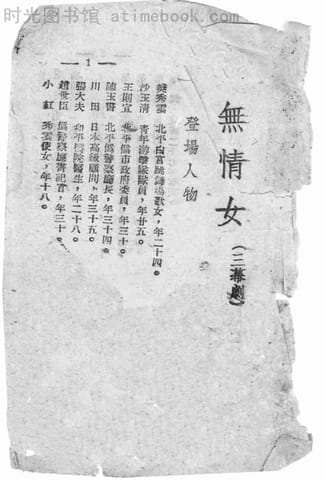 时光图书馆 atimebook.com
無情女(三幕劇)
登場人物
樊秀雲 北平白宮跳舞場歌女，年二十四。
沙玉清 青年游擊隊隊員，年廿五。
王則宣 北平僞市政府委員，年三十。
陳玉書 北平僞警察廳長，年三十四。
川田 日本高級顧問，年三十五。
張大夫 和平醫院醫生，年二十八。
趙世臣 僞警察廳書記官，年三十。
小紅 秀雲使女，年十八。
— 1 —